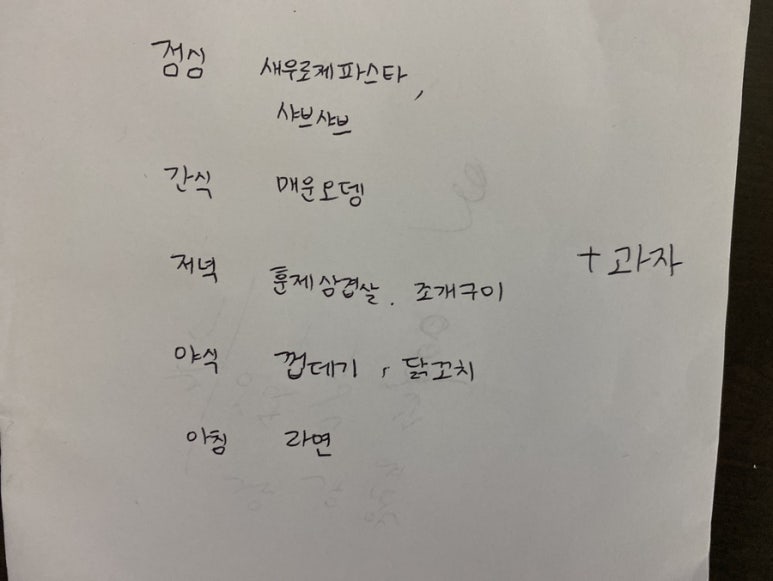 점심 새우로제파스타,
샤브샤브
간식 매운오뎅
저녁 훈제삼겹살, 조개구이
+ 과자
야식 껍데기, 닭꼬치
아침 라면